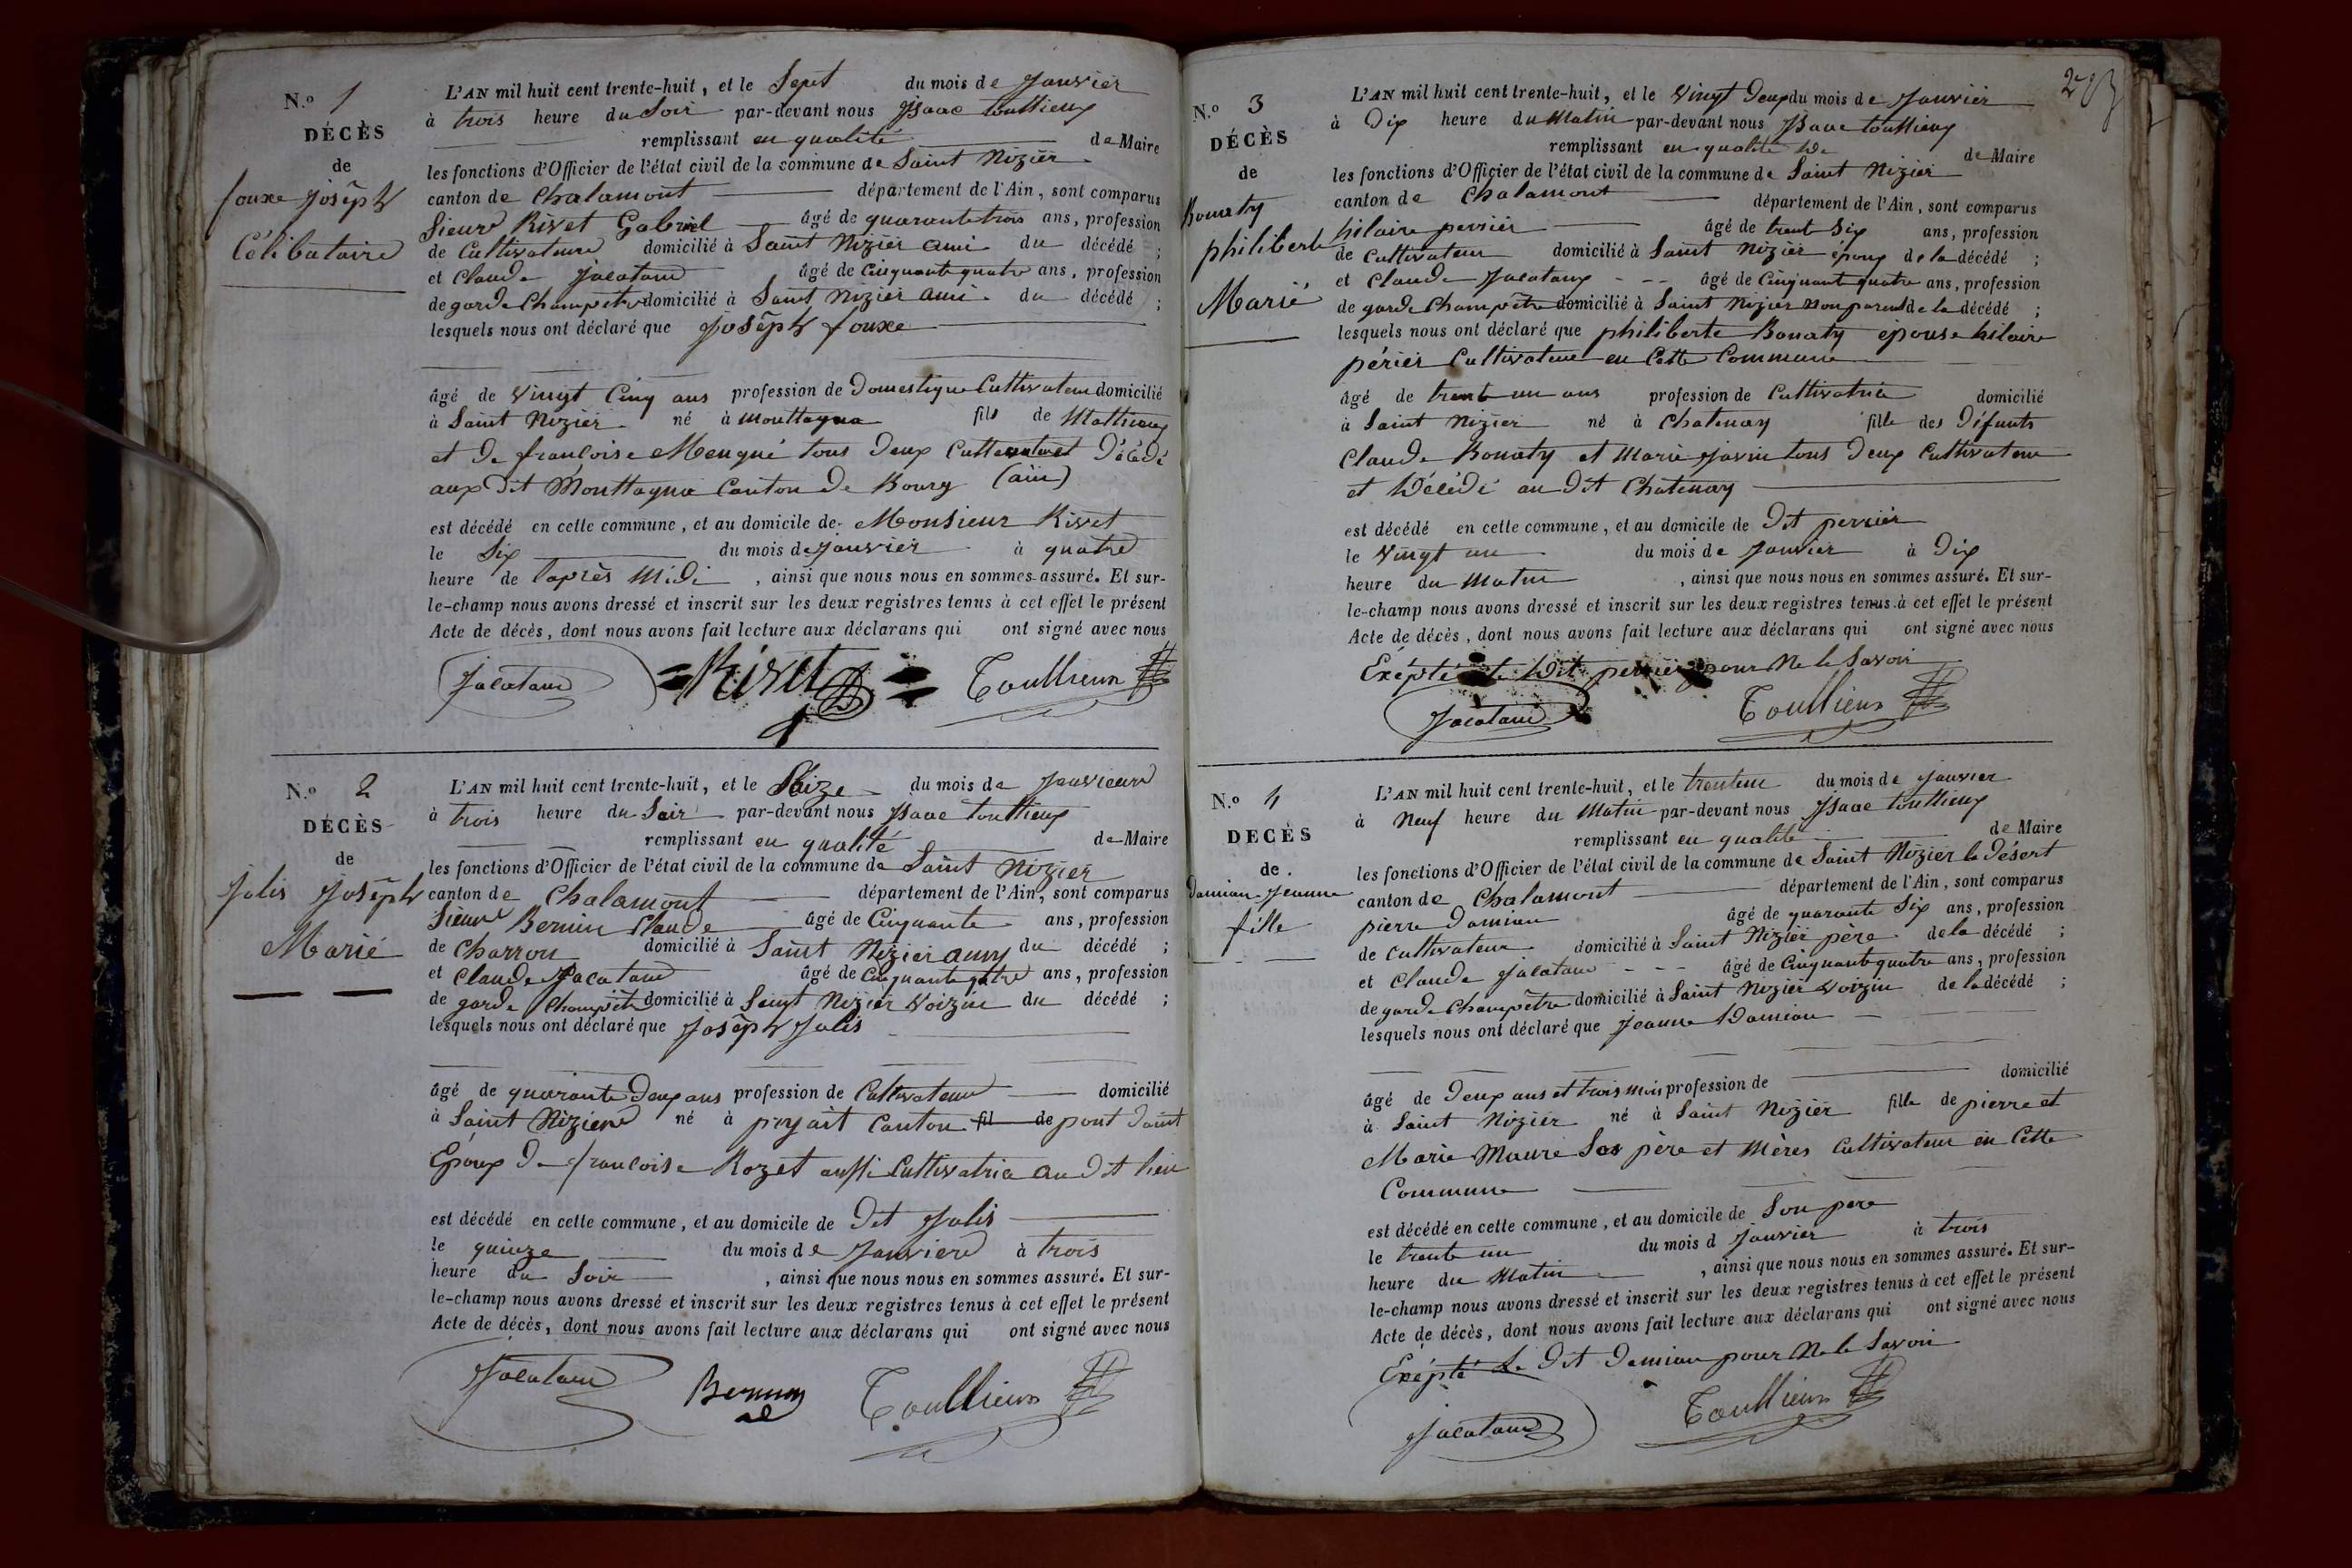 N.o 1
DÉCÈS
de
fouxe joseph
Célibataire
L'AN mil huit cent trente-huit, et le Sept du mois de Janvier
à trois heure du Soir par-devant nous Isaac toullieux
remplissant en qualité de Maire
les fonctions d'Officier de l'état civil de la commune de Saint Nizier
canton de Chalamont département de l'Ain, sont comparus
Sieur Rivet Gabriel âgé de quarante trois ans, profession
de Cultivateur domicilié à Saint Nizier ami du décédé ;
et Claude Jacatau âgé de Cinquante quatre ans, profession
de garde Champetre domicilié à Saint Nizier ami du décédé ;
lesquels nous ont déclaré que Joseph fouxe
âgé de Vingt Cinq ans profession de Domestique Cultivateur domicilié
à Saint Nizier né à Monttagna fils de Mathieux
et de francoise Mengué tous Deux Décédé
aux Dit Monttagna Canton de Bourg (ain)
est décédé en cette commune, et au domicile de Monsieur Rivet
le Six du mois de Janvier à quatre
heure de l'après Midi , ainsi que nous nous en sommes assuré. Et sur-
le-champ nous avons dressé et inscrit sur les deux registres tenus à cet effet le présent
Acte de décès, dont nous avons fait lecture aux déclarans qui ont signé avec nous
Jacatau Rivet Toullieux
N.o 2
DÉCÈS
de
Jolis Joseph
Marié
L'AN mil huit cent trente-huit, et le Saize du mois de Janvier
à trois heure du Soir par-devant nous Isaac toullieux
remplissant en qualité de Maire
les fonctions d'Officier de l'état civil de la commune de Saint Nizier
canton de Chalamont département de l'Ain, sont comparus
Sieur Bernin Claude âgé de Cinquante ans, profession
de Charron domicilié à Saint Nizier amy du décédé ;
et Claude Jacatau âgé de Cinquante quatre ans, profession
de garde Champetre domicilié à Saint Nizier Voizin du décédé ;
lesquels nous ont déclaré que Joseph Jolis
âgé de quarante Deux ans profession de Cultivateur domicilié
à Saint Nizier né à Canton fil de pont Daint
Epoux De francoise Rozet aussi Cultivatrice au Dit lieu
est décédé en cette commune, et au domicile de Dit Jolis
le quinze du mois de Janvier à trois
heure du Soir , ainsi que nous nous en sommes assuré. Et sur-
le-champ nous avons dressé et inscrit sur les deux registres tenus à cet effet le présent
Acte de décès, dont nous avons fait lecture aux déclarans qui ont signé avec nous
Jacatau Bernin Toullieux
N.o 3
DÉCÈS
de
Bonaty
philiberte
Marié
L'AN mil huit cent trente-huit, et le Vingt Deux du mois de Janvier
à Dix heure du Matin par-devant nous Isaac toullieux
remplissant en qualité De de Maire
les fonctions d'Officier de l'état civil de la commune de Saint Nizier
canton de Chalamont département de l'Ain, sont comparus
hilaire perrier âgé de trent Six ans, profession
de Cultivateur domicilié à Saint Nizier époux de la décédé ;
et Claude Jacataux âgé de Cinquant quatre ans, profession
de garde Champetre domicilié à Saint Nizier Non parent de la décédé ;
lesquels nous ont déclaré que philiberte Bonaty epouse hilaire
périer Cultivateur en Cette Commune
âgé de trent un ans profession de Cultivatrice domicilié
à Saint Nizier né à Chatenay fille des Défunts
Claude Bonaty et Marie Javin tous Deux Cultivateur
et Décédé au Dit Chatenay
est décédé en cette commune, et au domicile de Dit perrier
le Vingt un du mois de Janvier à Dix
heure du Matin , ainsi que nous nous en sommes assuré. Et sur-
le-champ nous avons dressé et inscrit sur les deux registres tenus à cet effet le présent
Acte de décès, dont nous avons fait lecture aux déclarans qui ont signé avec nous
Exépté le Dit perrier pour Ne le Savoir
Jacatau Toullieux
N.o 4
DECÈS
de
Damian Jeanne
fille
L'AN mil huit cent trente-huit, et le trenteun du mois de Janvier
à Neuf heure du Matin par-devant nous Isaac toullieux
remplissant en qualité de Maire
les fonctions d'Officier de l'état civil de la commune de Saint Nizier le Désert
canton de Chalamont département de l'Ain, sont comparus
pierre Damian âgé de quarante Six ans, profession
de cultivateur domicilié à Saint Nizier père de la décédé ;
et Claude Jacatau âgé de Cinquante quatre ans, profession
de garde Champêtre domicilié à Saint Nizier Voizin de la décédé ;
lesquels nous ont déclaré que Jeanne Damian
âgé de Deux ans et trois mois profession de domicilié
à Saint Nizier né à Saint Nizier fille de pierre et
Marie Maure Ses père et Mères Cultivateur en Cette
Commune
est décédé en cette commune, et au domicile de Son père
le trente un du mois d Janvier à trois
heure du Matin , ainsi que nous nous en sommes assuré. Et sur-
le-champ nous avons dressé et inscrit sur les deux registres tenus à cet effet le présent
Acte de décès, dont nous avons fait lecture aux déclarans qui ont signé avec nous
Exépté Le Dit Damian pour Ne le Savoir
Jacatau Toullieux